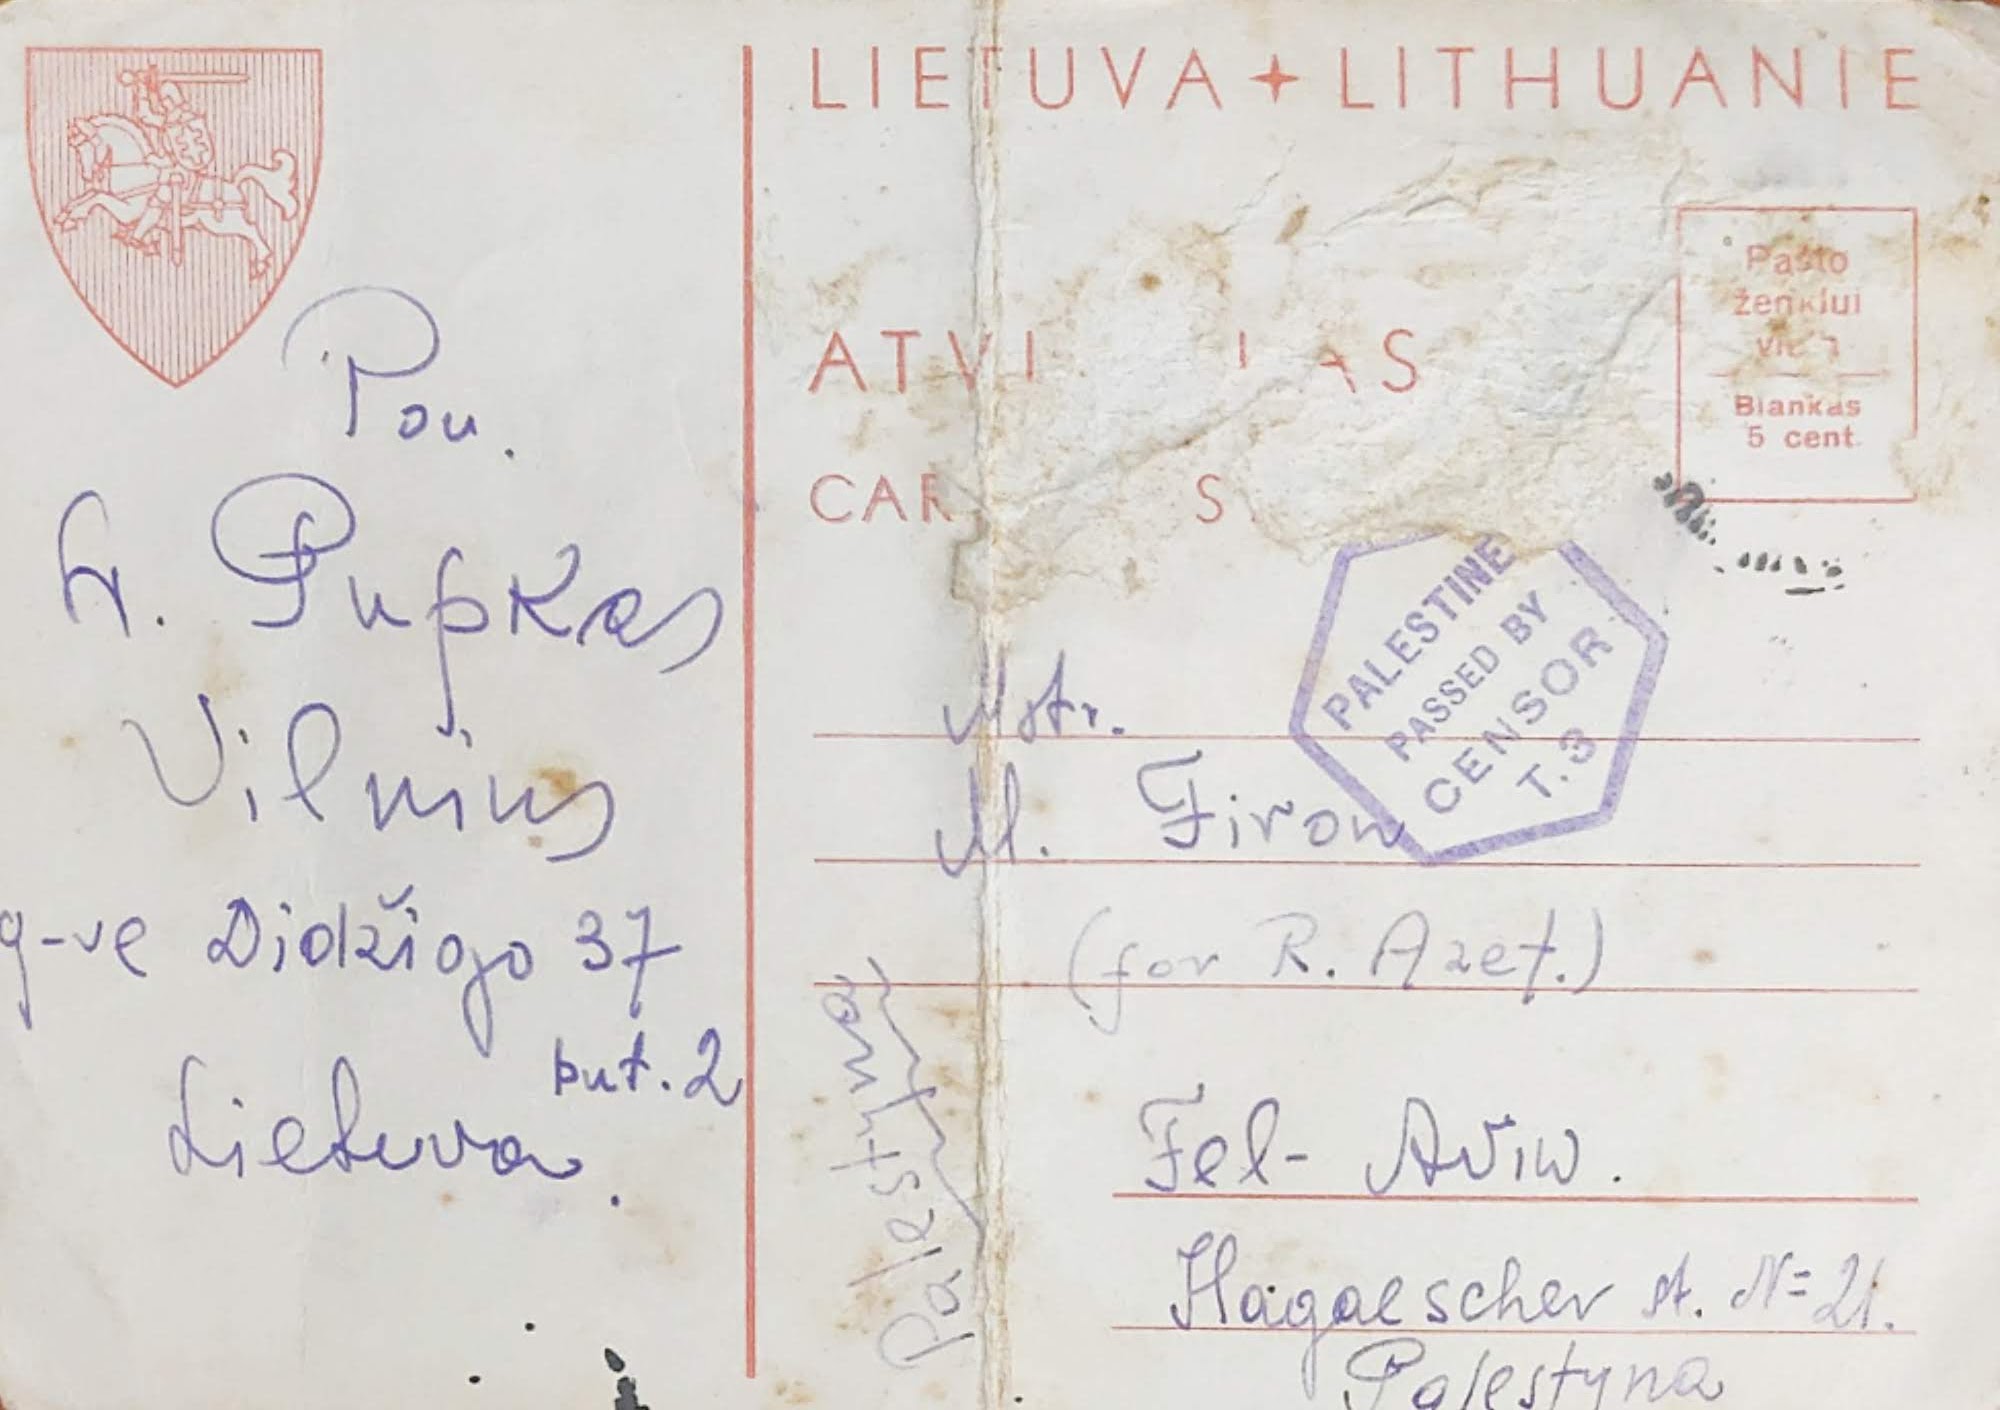 LIETUVA LITHUANIE
Pašto
ženklui
Blankas
5 cent.
Pon.
Pupkas
Vilnius
g-vė Didžiojo 37
but. 2
Lietuva.
PALESTINE
PASSED BY
CENSOR
T. 3
Mstr.
M. Firon
(for R. Azef.)
Tel-Aviw.
Hagaescher st. N= 21.
Palestyna
Palestyna